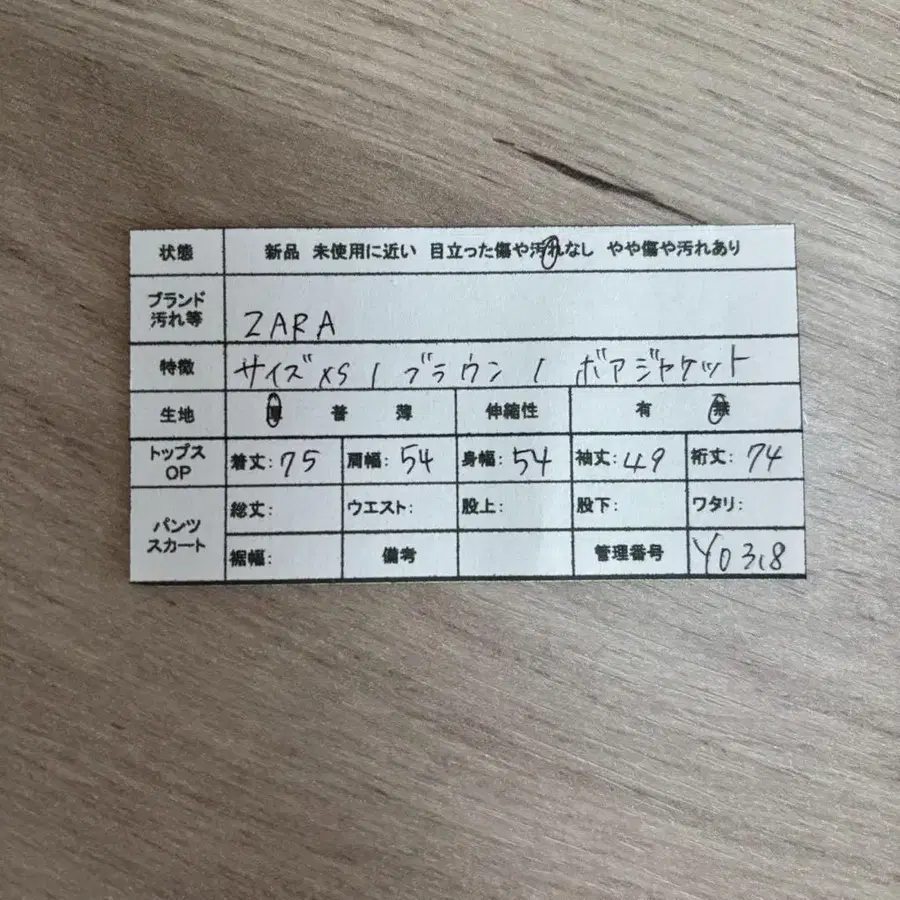 状態 新品 未使用に近い 目立った傷や汚れなし やや傷や汚れあり
ブランド
汚れ等
ZARA
特徴 サイズ XS / ブラウン / ボアジャケット
生地 厚 普 薄 伸縮性 有 無
トップス
OP
着丈: 75 肩幅: 54 身幅: 54 袖丈: 49 裄丈: 74
パンツ
スカート
総丈: ウエスト: 股上: 股下: ワタリ:
裾幅: 備考 管理番号 Y0318